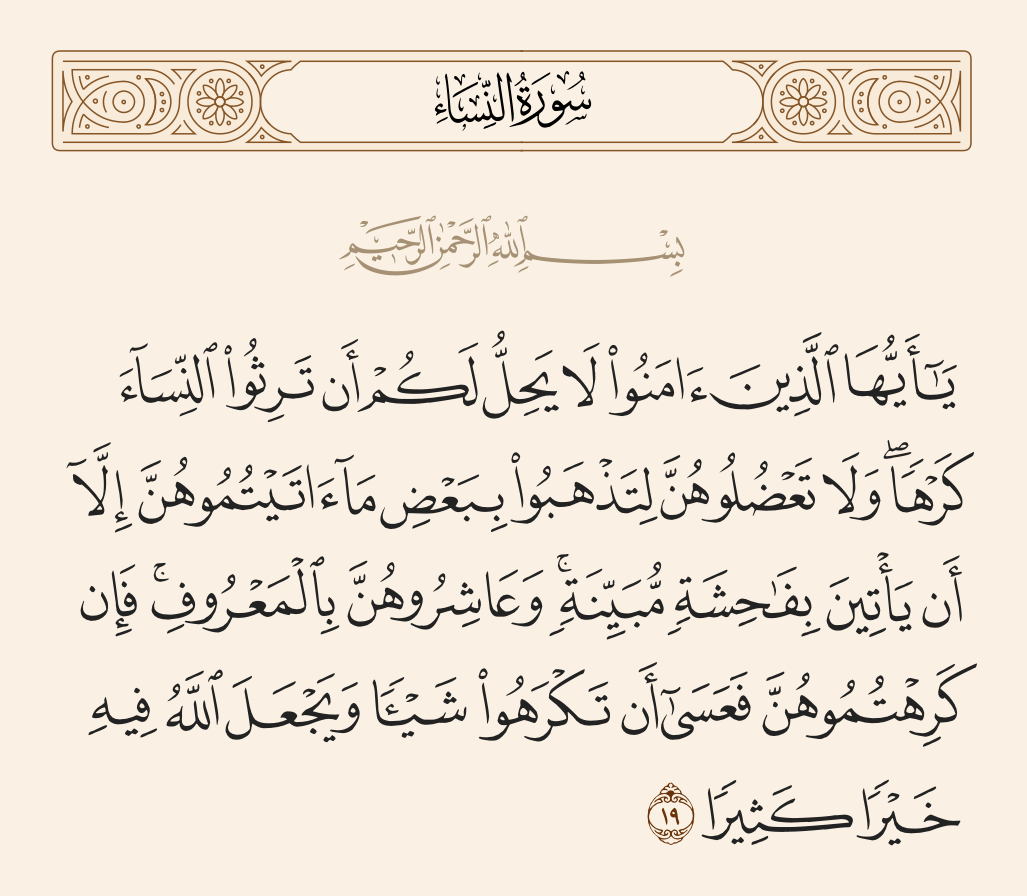 سُورَةُ النِّسَاءِ
بِسْمِ ٱللَّهِ ٱلرَّحْمَٰنِ ٱلرَّحِيمِ
يَٰٓأَيُّهَا ٱلَّذِينَ ءَامَنُوا۟ لَا يَحِلُّ لَكُمْ أَن تَرِثُوا۟ ٱلنِّسَآءَ
كَرْهًا ۖ وَلَا تَعْضُلُوهُنَّ لِتَذْهَبُوا۟ بِبَعْضِ مَآ ءَاتَيْتُمُوهُنَّ إِلَّآ
أَن يَأْتِينَ بِفَٰحِشَةٍ مُّبَيِّنَةٍ ۚ وَعَاشِرُوهُنَّ بِٱلْمَعْرُوفِ ۚ فَإِن
كَرِهْتُمُوهُنَّ فَعَسَىٰٓ أَن تَكْرَهُوا۟ شَيْـًٔا وَيَجْعَلَ ٱللَّهُ فِيهِ
خَيْرًا كَثِيرًا ١٩